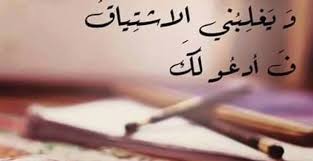 وَ يَغلِبُني الاشتِياقُ
فَ أدعُو لكَ